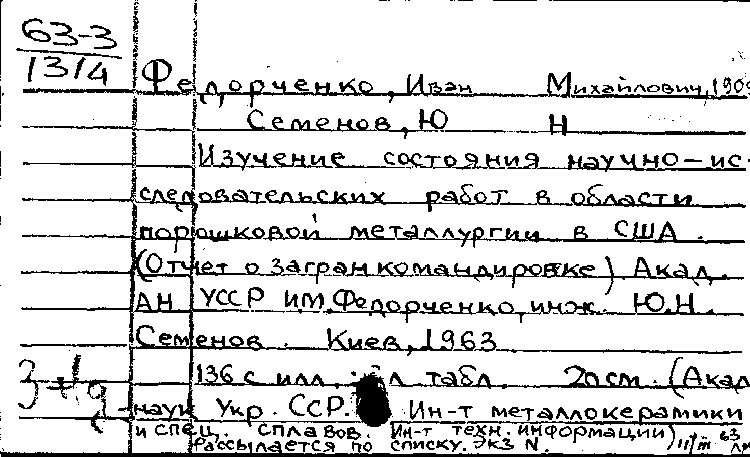 63-3
1314
Федорченко, Иван Михайлович, 1909
Семенов, Ю Н
Изучение состояния научно-ис-
следовательских работ в области
порошковой металлургии в США.
(Отчет о загран командировке) Акад.
АН УССР И.М. Федорченко, инж. Ю.Н.
Семенов. Киев, 1963
136 с илл, табл. 20см. (Акад
наук Укр. ССР. Ин-т металлокерамики
и спец. сплавов. Ин-т техн. информации)
Рассылается по списку. Экз N.